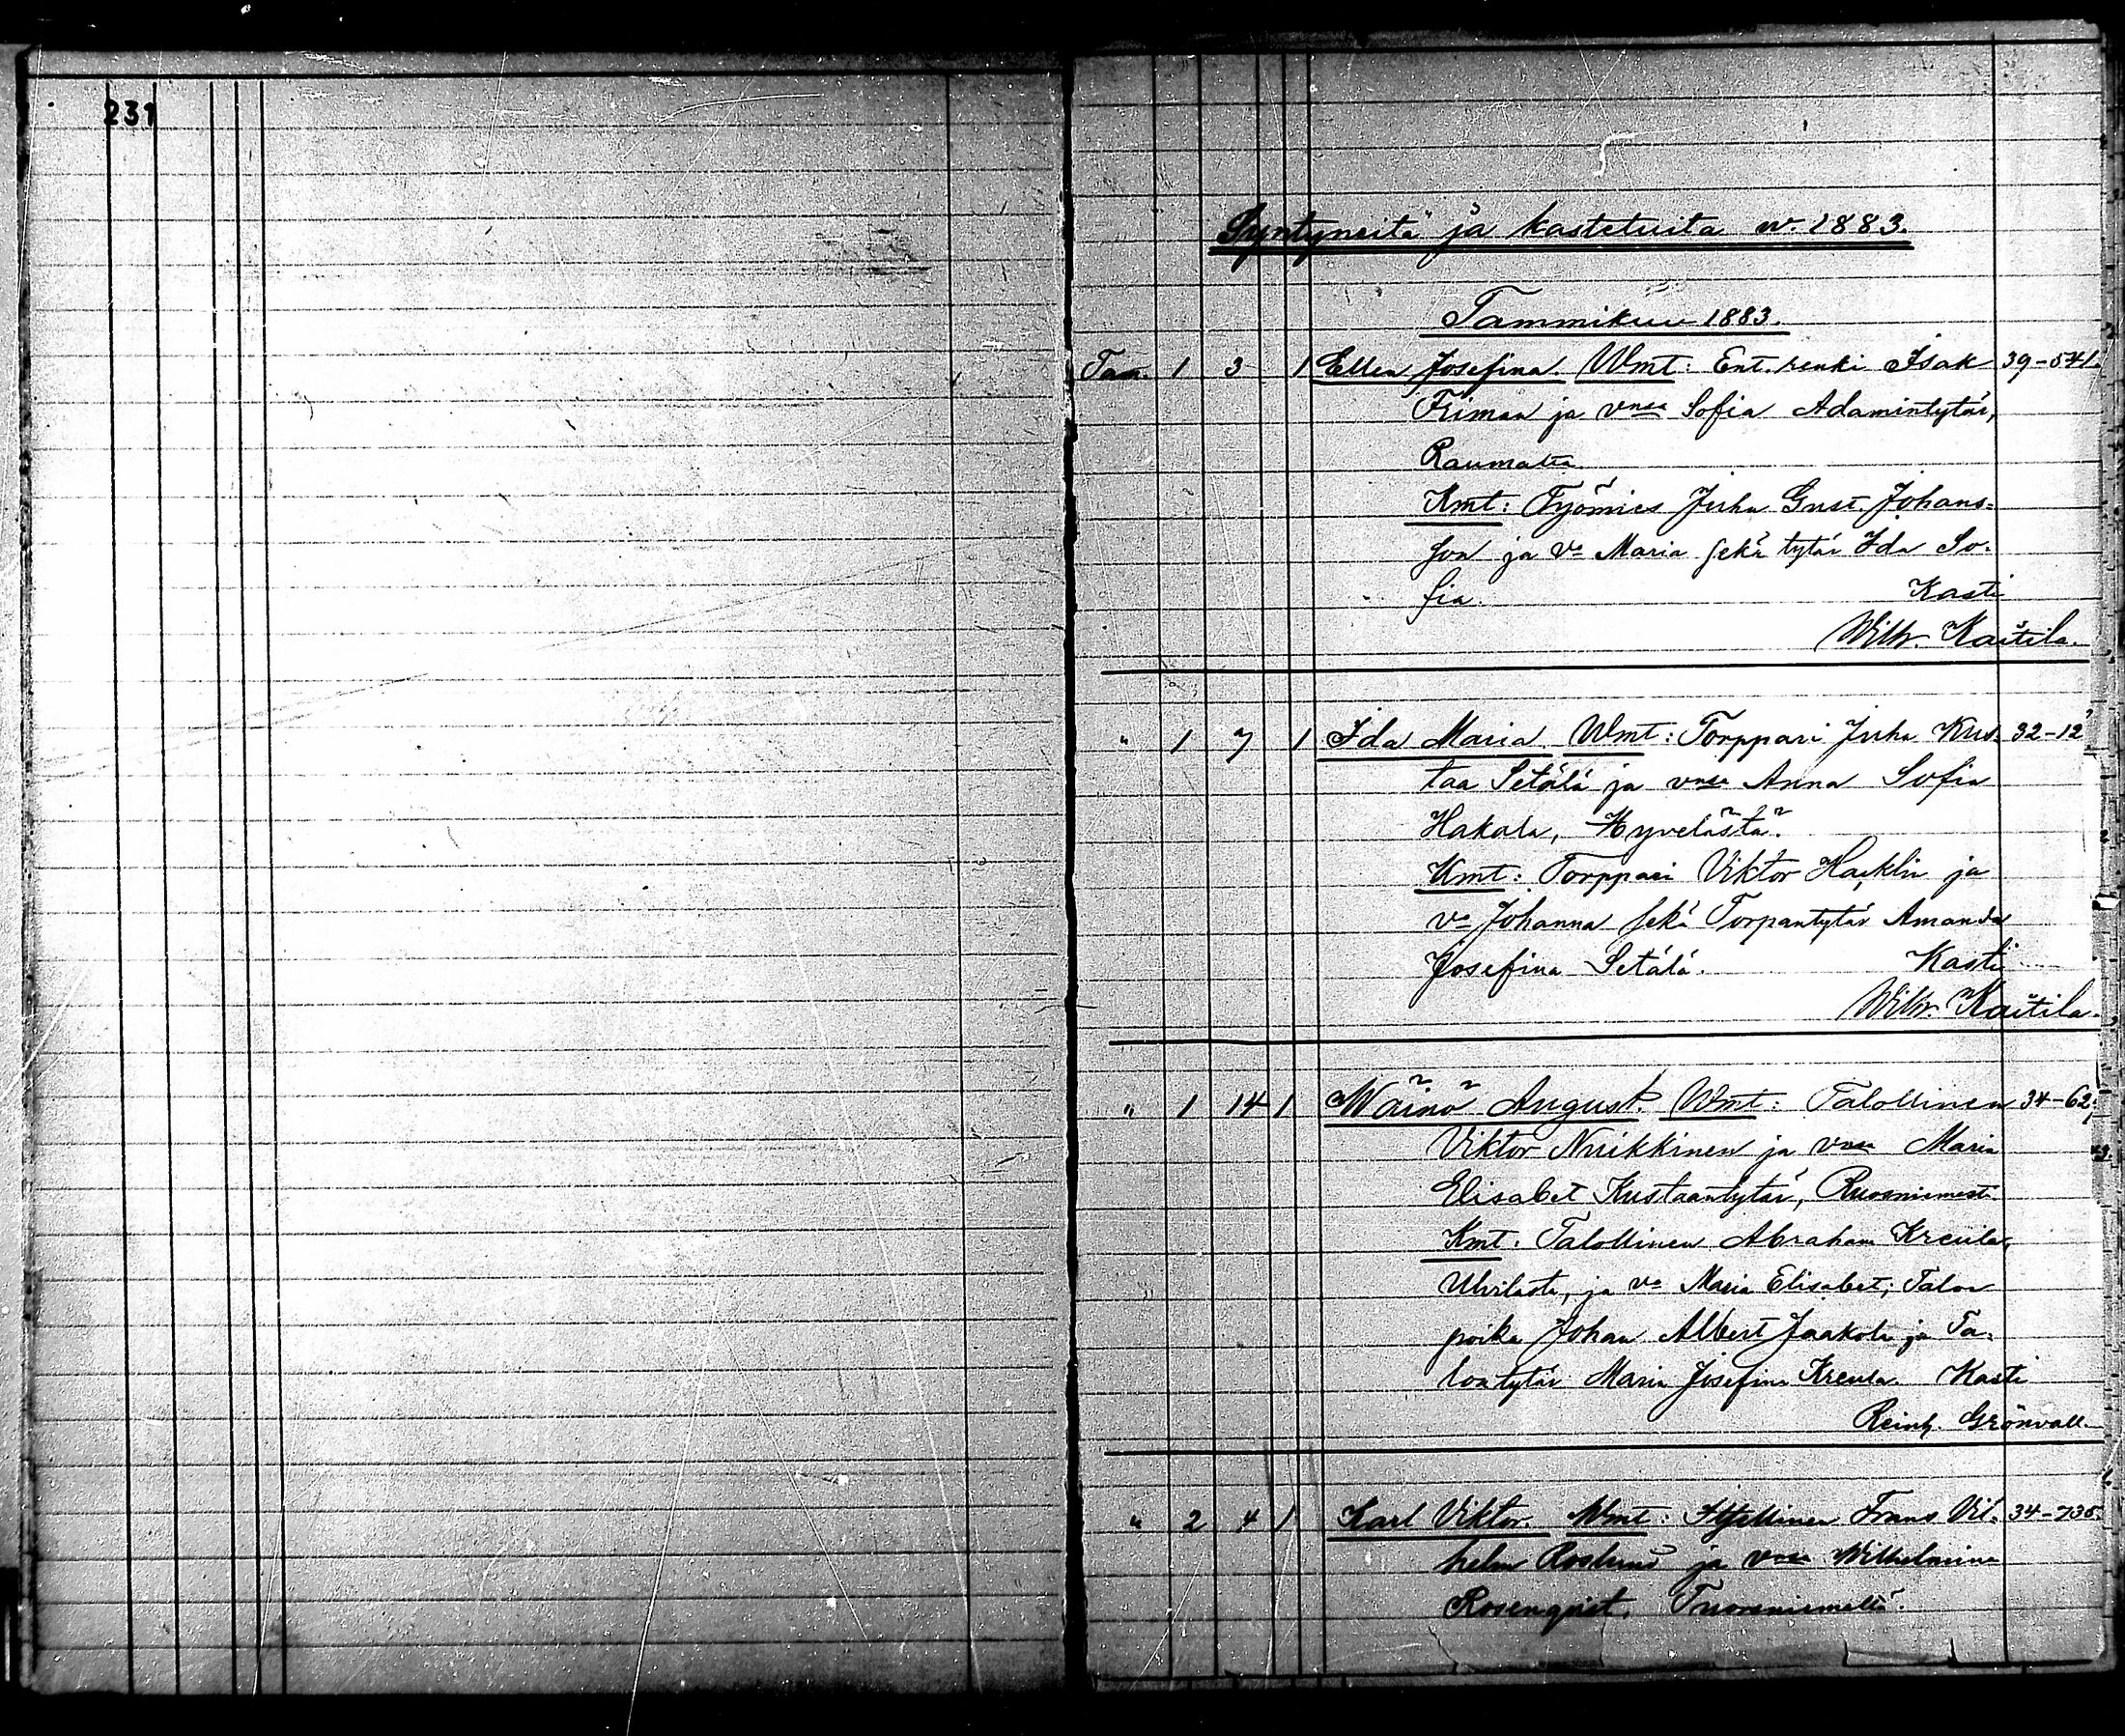 231
Syntyneitä ja kastetuita v. 1883.
Tammikuu 1883.
Tam. 1 3 1 Ellen Josefina. Wmt: Ent. renki Isak 39-541.
Friman ja vnsa Sofia Adamintytär,
Raumalta
Kmt: Työmies Juha Gust. Johans=
son ja va Maria sekä tytär Ida So-
fia. Kasti
Wilh. Kaitila.
" 1 7 1 Ida Maria. Wmt: Torppari Juha Kus- 32-12
taa Setälä ja vnsa Anna Sofia
Hakala, Hyvelästä.
Kmt: Torppari Viktor Hacklin ja
va Johanna sekä Torpantytär Amanda
Josefina Setälä. Kasti
Wilh. Kaitila.
" 1 14 1 Wäinö August. Wmt: Talollinen 34-62.
Viktor Nuikkinen ja vnsa Maria
Elisabet Kustaantytär, Ruosniemestä
Kmt. Talollinen Abraham Kreula,
Ulvilasta, ja va Maria Elisabet; Talon
poika Johan Albert Jaakola ja Ta-
lontytär Maria Josefina Kreula. Kasti
Reinh. Grönvall.
" 2 4 1 Karl Viktor. Wmt: Itsellinen Frans Vil- 34-735.
helm Roslund ja vnsa Wilhelmina
Rosenqvist,